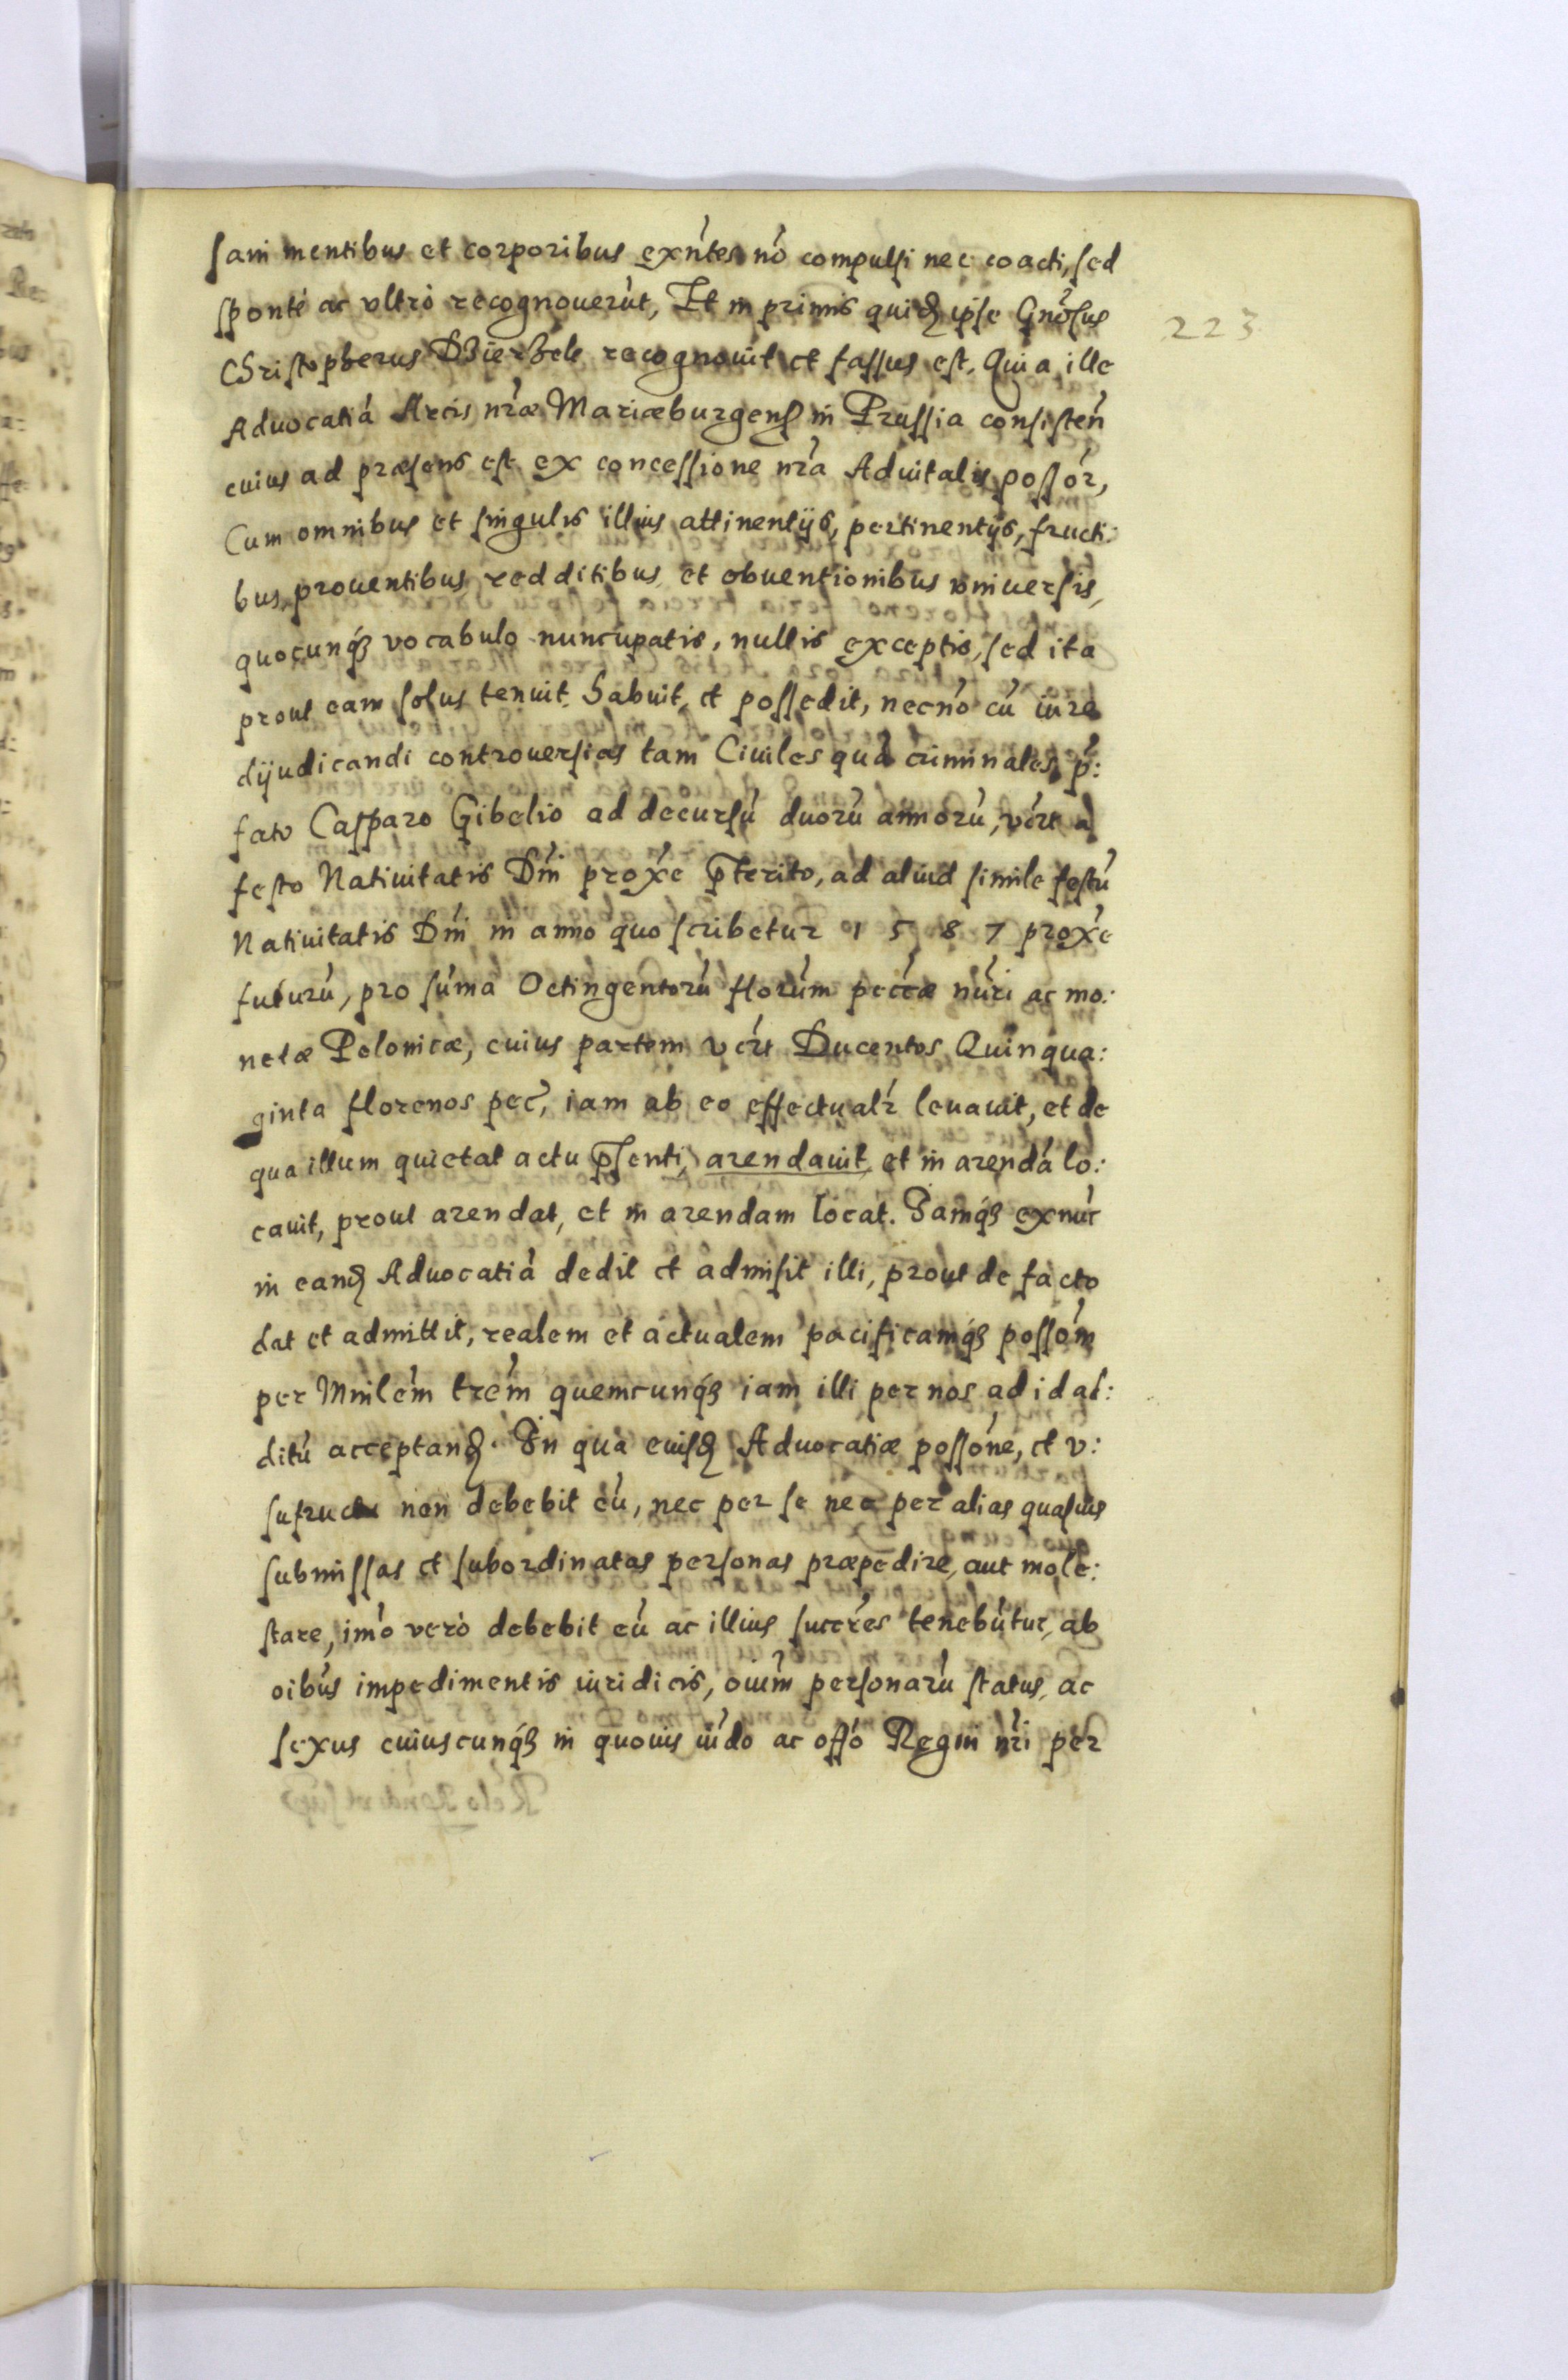 sani mentibus et corporibus exńtes nó compulsi nec coacti, sed
sponté ac vltró recognouerút, Et in primis quidȝ ipse Gnósus
Christopherus recognouit et fassus est. Quia ille
Advocatiá Arcis nŕæ Mariæburgenſ in Prussia consisteń
cuius ad præsens est ex concessione nŕa Aduitalis possór,
Cum omnibus et singulis illius attinentijs, pertinentijs, fructi:
bus, prouentibus redditibus et obuentionibus vniuersis,
quocunqȝ vocabulo nuncupatis, nullis exceptis, sed ita
prout eam solus tenuit, habuit, et possedit, necnó cú iure
dijudicandi controuersias tam Ciuiles quá criminales, p̃:
fato Casparo Gibelio ad decursú duorú annorú, vićzt a
festo Natiuitatis Dńi proxe p̃terito, ad aliud simile festú
Natiuitatis Dńi in anno quo scribetur 1 5 8 7 proxe
futurú, pro súma Octingentorú florúm peććæ nuŕi ac mo:
netæ Polonicæ, cuius partem vićzt Ducentos Quinqua:
ginta florenos peć, iam ab eo effectualŕ leuauit, et de
qua illum quietat actu p̃senti, arendauit, et in arendá lo:
cauit, prout arendat, et in arendam locat. Iamqȝ exnúc
in eandȝ Advocatiá dedit et admisit illi, prout de facto
dat et admittit, realem et actualem pacificamqȝ possóm
per Mnilém trém quemcunqȝ iam illi per nos ad id ad:
ditú acceptandȝ. In qua euisdȝ Advocatiæ possóne, et v:
sufructu non debebit eú, nec per se nec per alias quasuis
submissas et subordinatas personas præpedire, aut mole:
stare, imó veró debebit eú ac illius succŕes tenebútur, ab
oíbus impedimentis iuridicis, oíum personarú status, ac
sexus cuiuscunqȝ in quouis iúdo ac offó Regni nŕi per
223